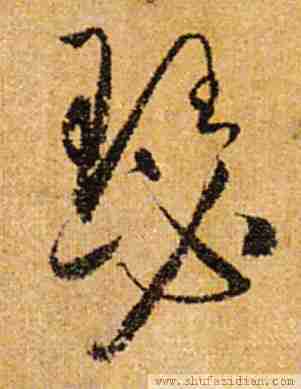 瑟
www.shufazidian.com